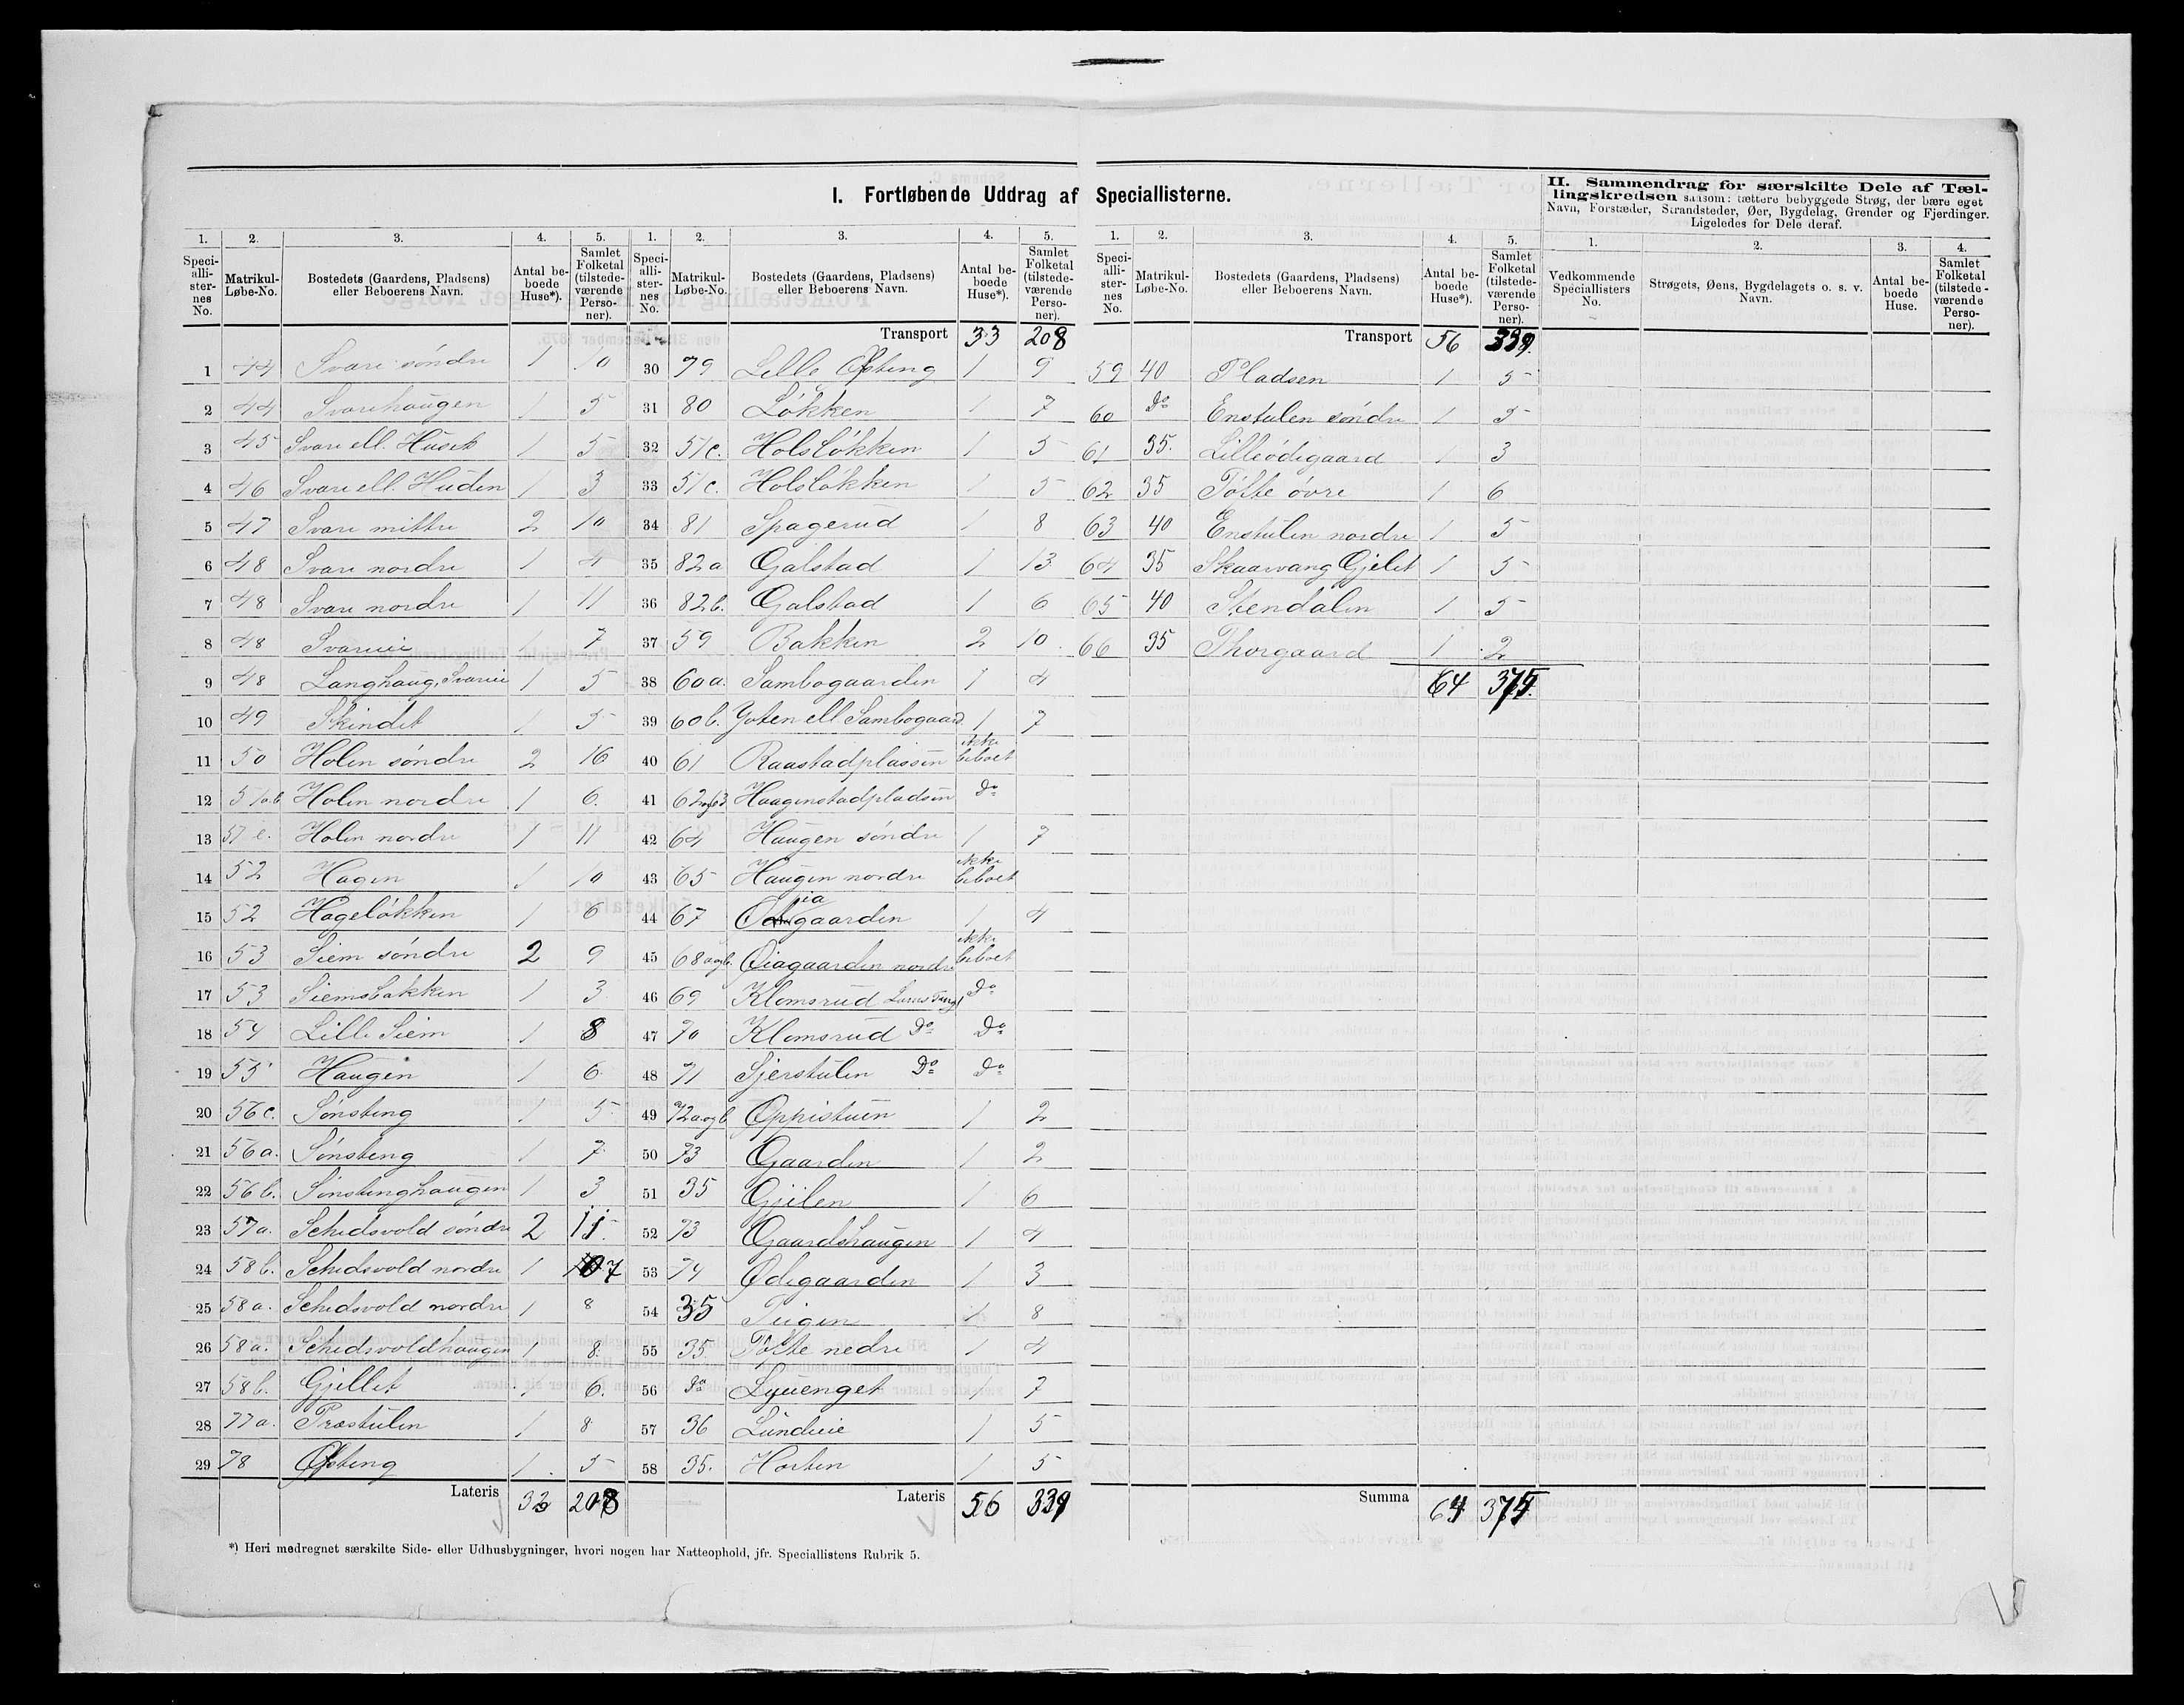 I. Fortløbende Uddrag af Speciallisterne.
1. 2. 3. 4. 5.
Speciallisternes No. Matrikul-Løbe-No. Bostedets (Gaardens, Pladsens) eller Beboerens Navn. Antal beboede Huse*). Samlet Folketal (tilstedeværende Personer).
1 44 Svare søndre 1 10
2 44 Svarehaugen 1 5
3 45 Svare ell. Huset 1 5
4 46 Svare ell. Huden 1 3
5 47 Svare mittre 2 10
6 48 Svare nordre 1 4
7 48 Svare nordre 1 11
8 48 Svareie 1 7
9 48 Langhaug, Svareie 1 5
10 49 Skindet 1 5
11 50 Holen søndre 2 16
12 51ab. Holen nordre 1 6.
13 51 e. Holen nordre 1 11
14 52 Hagen 1 10
15 52 Hageløkken 1 6
16 53 Siem søndre 2 9
17 53 Siemsbakken 1 3
18 54 Lille Siem 1 8
19 55 Haugen 1 6
20 56c. Sønsteng 1 5
21 56a. Sønsteng 1 7
22 56b. Sønstenghaugen 1 3
23 57a. Schedsvold søndre 2 11
24 58b. Schedsvold nordre 1 7
25 58a. Schedsvold nordre 1 8
26 58a. Schedsvoldhaugen 1 8.
27 58b. Gjellet 1 6.
28 77a. Præstulen 1 8
29 78 Øfsteng 1 5
Lateris 33 208
1. 2. 3. 4. 5.
Speciallisternes No. Matrikul-Løbe-No. Bostedets (Gaardens, Pladsens) eller Beboerens Navn. Antal beboede Huse*). Samlet Folketal (tilstedeværende Personer).
Transport 33 208
30 79 Lille Øfsteng 1 9
31 80 Løkken 1 7
32 51c. Holsløkken 1 5
33 51c. Holsløkken 1 5
34 81 Spagerud 1 8
35 82a Galstad 1 13
36 82b. Galstad 1 6
37 59 Bakken 2 10
38 60a. Sambogaarden 1 4
39 60b. Yoten ell Sambogaard. 1 7
40 61 Raastadplassen Ikke beboet
41 62og63 Haagenstadpladsen Do
42 64 Haugen søndre 1 7
43 65 Haugen nordre Ikke beboet
44 67 Øiagaarden 1 4
45 68aogb. Øiagaarden nordre Ikke beboet
46 69 Klomsrud Do
47 70 Klomsrud Do Do
48 71 Sjerstulen Do Do
49 72aogb Oppistuen 1 2
50 73 Gaarden 1 2
51 35 Gjeilen 1 6
52 73 Gaardshaugen 1 4
53 74 Ødegaarden 1 3
54 35 Teigen 1 8
55 35 Tofte nedre 1 4
56 Do Lyuenget 1 7
57 36 Lundeie 1 5
58 35. Horten 1 5
Lateris 56 339
1. 2. 3. 4. 5.
Speciallisternes No. Matrikul-Løbe-No. Bostedets (Gaardens, Pladsens) eller Beboerens Navn. Antal beboede Huse*). Samlet Folketal (tilstedeværende Personer).
Transport 56 339.
59 40 Pladsen 1 5
60 Do Enstulen søndre 1 5
61 35. Lilleødegaard 1 3
62 35 Tofte øvre 1 6
63 40 Enstulen nordre 1 5
64 35 Skaarvang Gjelet 1 5
65 40 Stendalen 1 5
66 35 Thorgaard 1 2
64 375.
Summa 64 375
II. Sammendrag for særskilte Dele af Tællingskredsen saasom: tættere bebyggede Strøg, der bære eget
Navn, Forstæder, Strandsteder, Øer, Bygdelag, Grender og Fjerdinger.
Ligeledes for Dele deraf.
1. 2. 3. 4.
Vedkommende Speciallisters No. Strøgets, Øens, Bygdelagets o. s. v. Navn. Antal beboede Huse. Samlet Folketal (tilstedeværende Personer).
*) Heri medregnet særskilte Side- eller Udhusbygninger, hvori nogen har Natteophold, jfr. Speciallistens Rubrik 5.